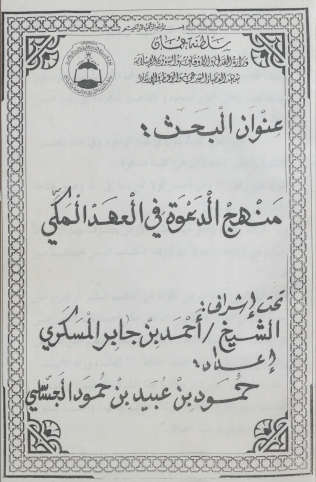 سلطنة عمان
وزارة العدل والأوقاف والشؤون الإسلامية
معهد القضاء الشرعي والوعظ والإرشاد
عنوان البحث:
منهج الدعوة في العهد المكي
تحت إشراف:
الشيخ / أحمد بن جابر المسكري
إعداد:
حمود بن عبيد بن حمود الجساسي